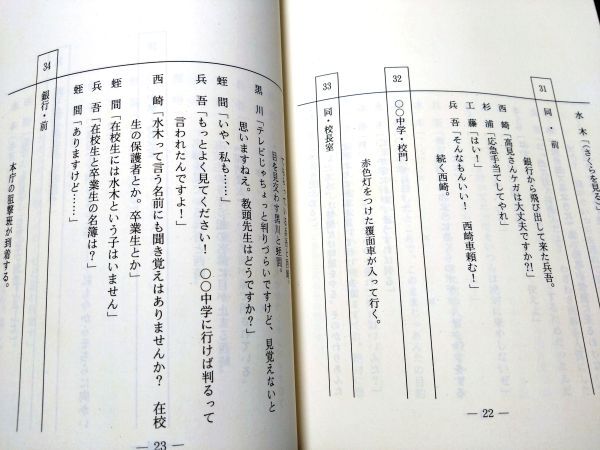 水 木「（さくらを見る）
31 同・前
銀行から飛び出して来た兵吾。
西 崎「高見さんケガは大丈夫ですか?!」
杉 浦「応急手当てしてやれ」
工 藤「はい！」
兵 吾「そんなもんいい！ 西崎車頼む！」
続く西崎。
32 〇〇中学・校門
赤色灯をつけた覆面車が入って行く。
33 同・校長室
― 22 ―
目を見交わす黒川と蛭間。
黒 川「テレビじゃちょっと判りづらいですけど、見覚えないと
思いますねえ。教頭先生はどうですか？」
蛭 間「いや、私も……」
兵 吾「もっとよく見てください！ 〇〇中学に行けば判るって
言われたんですよ！」
西 崎「水木って言う名前にも聞き覚えはありませんか？ 在校
生の保護者とか。卒業生とか」
蛭 間「在校生には水木という子はいません」
兵 吾「在校生と卒業生の名簿は？」
蛭 間「ありますけど……」
34 銀行・前
本庁の狙撃班が到着する。
― 23 ―